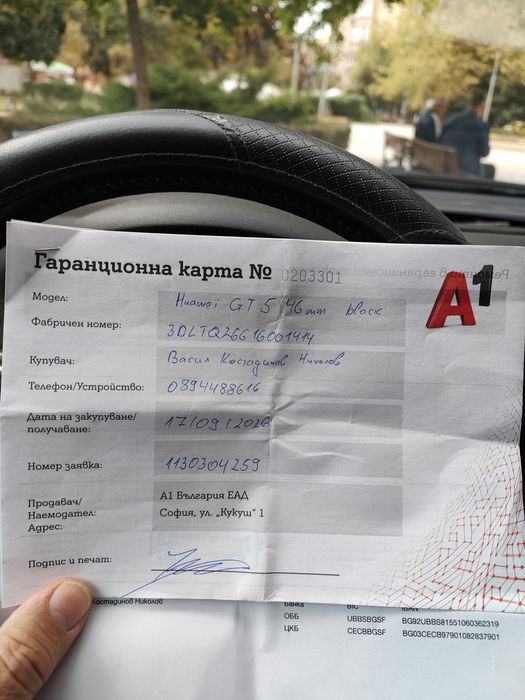 Гаранционна карта № 0203301
A1
Модел: Huawei GT 5 46mm black
Фабричен номер: 3DLTQ26616001414
Купувач: Васил Костадинов Николов
Телефон/Устройство: 0894488616
Дата на закупуване/
получаване: 17/09/2026
Номер заявка: 1130304259
Продавач/ А1 България ЕАД
Наемодател: София, ул. „Кукуш" 1
Адрес:
Подпис и печат:
Костадинов Николов
Банка BIC IBAN
ОББ UBBSBGSF BG92UBBS81551060362319
ЦКБ CECBBGSF BG03CECB97901082837901